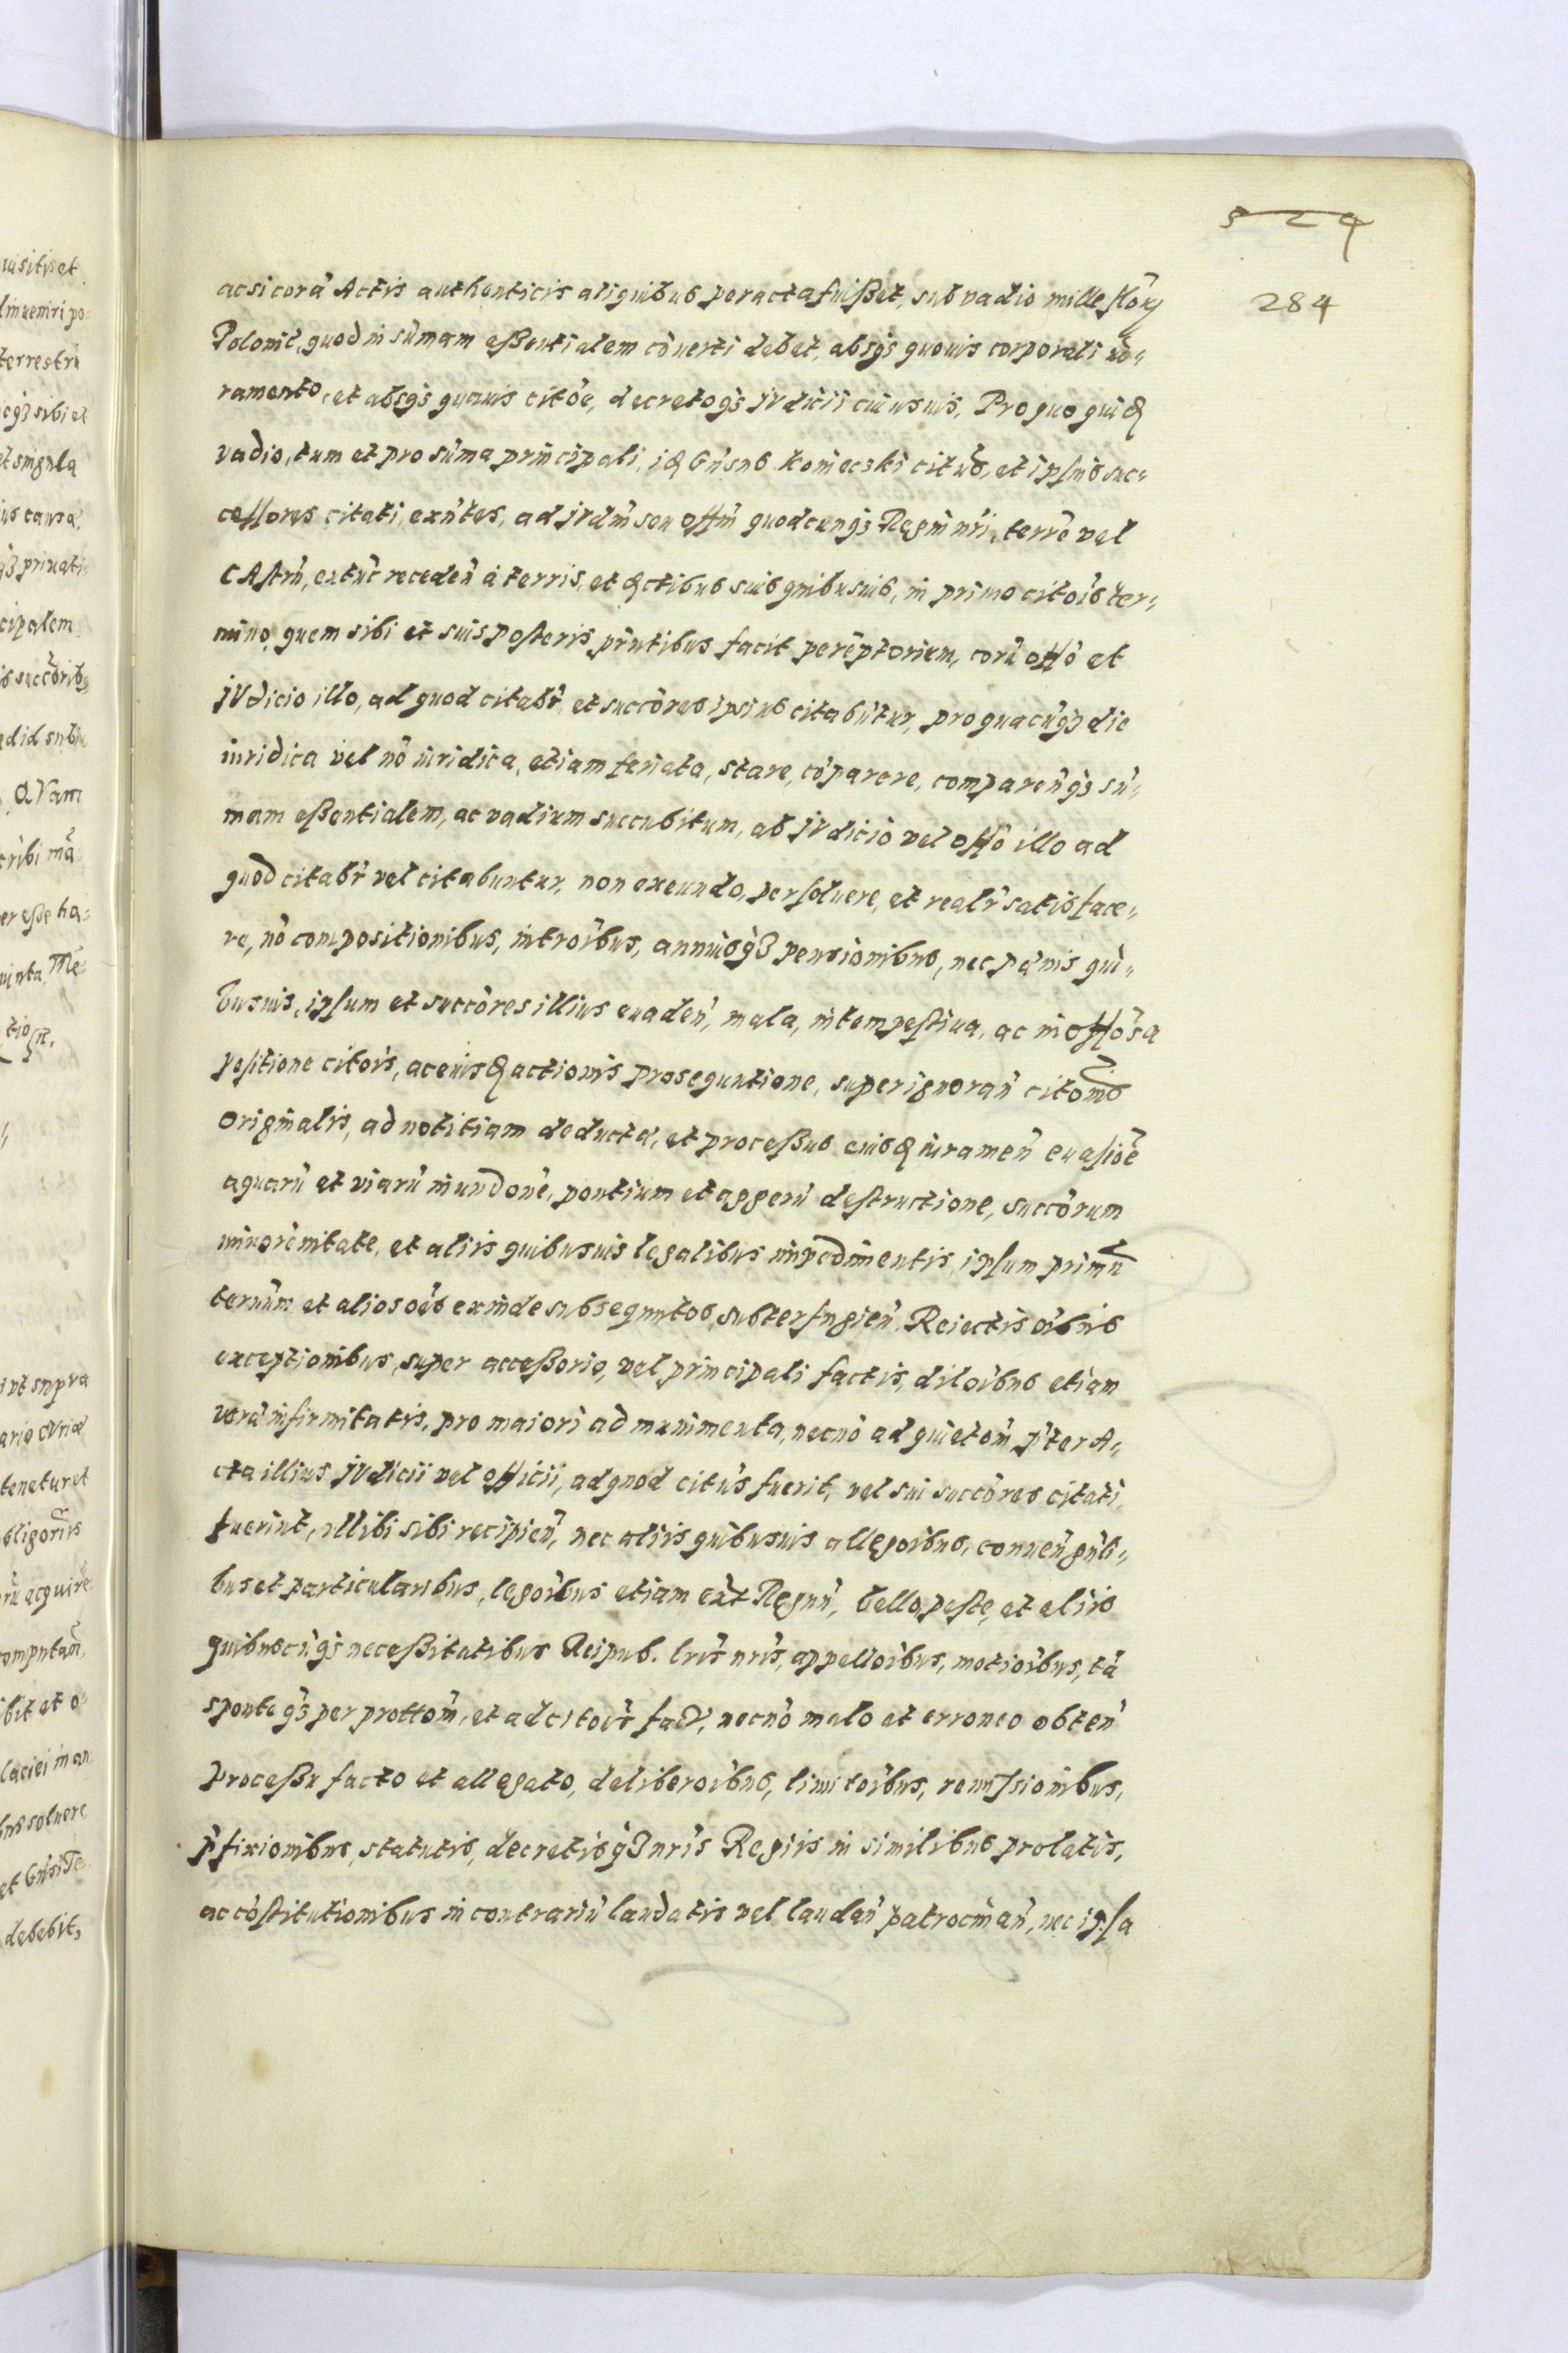 529
284
ac si corā Actis authenticis aliquibus peracta fuißet, sub vadio mille flōrȝ
Polonic̄, quod in sūmam eßentialem cōuerti debet, absq̄ȝ quouis corporali iu=
ramento, et absq̄ȝ quauis citōe, decretoq̄ȝ jVdicii cuiusuis, Pro quo quid
vadio, tum et pro sūma principali, id Gn̄sus Koniecski citūs, et ipsius suc=
cessores citati, exn̄tes, ad jVdm̄ seu offm̄ quodcunq̄ȝ Regni nr̄i, terrē vel
CAstrn̄, extūc receden̄ à terris, et dctibus suis quibusuis, in primo citōis ter=
mino, quem sibi et suis posteris pn̄tibus facit perēptorium, corā offō et
jVdicio illo, ad quod citabr̄, et succōres ipsius citabūtur, pro quacūq̄ȝ die
iuridica vel nō iuridica, etiam feriata, stare, cōparere, comparen̄q̄ȝ sū=
mam eßentialem, ac vadium succubitum, ab jVdicio vel offō illo ad
quod citabr̄ vel citabuntur, non exeundo, persoluere, et realr̄ satisface=
re, nō compositionibus, introībus, annuisq̄ȝ pensionibus, nec pænis qui=
busuis, ipsum et succōres illius euaden̄, mala, intempestiua, ac inoffōsa
positione citōis, ac eiusd actionis prosequutione, super ignoran̄ citōnis
originalis, ad notitiam deductæ, et proceßus eiusd iuramen̄ euasiōe
aquarū et viarū inundōne, pontium et aggerū destructione, succōrum
minorēnitate, et aliis quibusuis legalibus impedimentis, ipsum primū
termm̄ et alios oēs exinde subsequutos, subterfugien̄, Reiectis oībus
exceptionibus, super acceßorio, vel principali factis, dilōibus etiam
veræ infirmitatis, pro maiori ad munimenta, necnō ad quietōm p̄ter A=
cta illius jVdicii vel officii, ad quod citūs fuerit, vel sui succōres citati,
fuerint, illibi sibi recipien̄, nec aliis quibusuis allegōibus, conuen̄ gn̄li=
bus et particularibus, legōibus etiam ext Regnū, bello, peste, et aliis
quibuscūq̄ȝ neceßitatibus Reipub. lr̄is nr̄is, appellōibus, motiōibus, tā
sponte q̄ȝ per prottōm, et ad citōr̄ fact̄, necnō malo et erroneo obten̄
Proceßu facto et allegato, deliberōibus, limitōibus, remissionibus,
p̄fixionibus, statutis, decretisq̄ȝ nr̄is Regiis in similibus prolatis,
ac cōstitutionibus in contrariū laudatis vel laudan̄ patrocinan̄, nec ipsa